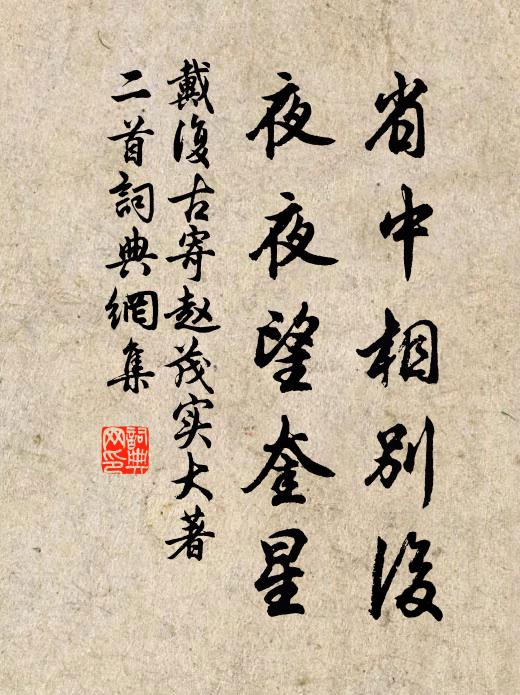 省中相别後
夜夜望奎星
戴復古寄赵茂实大著
二首詞典網集
詞典
网印